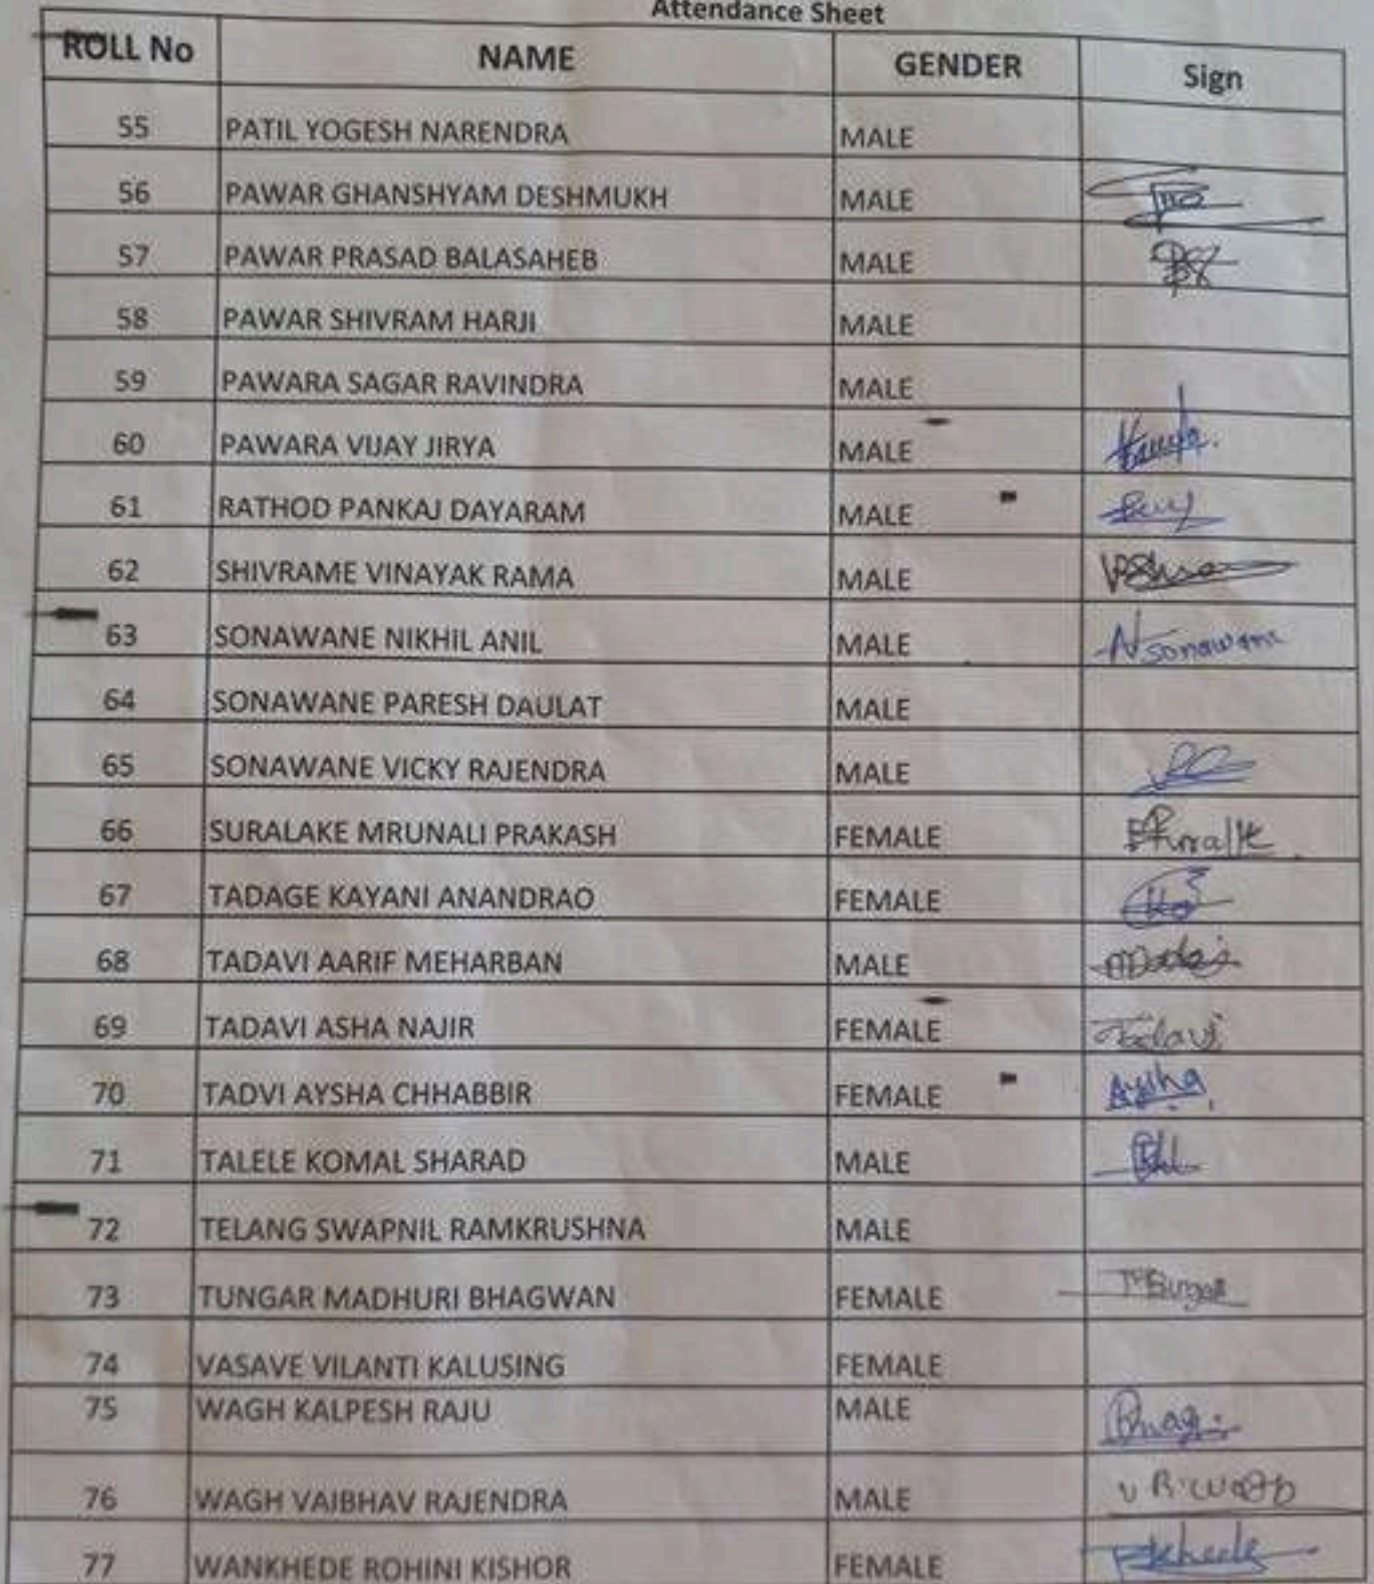 Attendance Sheet
ROLL No NAME GENDER Sign
55 PATIL YOGESH NARENDRA MALE
56 PAWAR GHANSHYAM DESHMUKH MALE
57 PAWAR PRASAD BALASAHEB MALE
58 PAWAR SHIVRAM HARJI MALE
59 PAWARA SAGAR RAVINDRA MALE
60 PAWARA VIJAY JIRYA MALE
61 RATHOD PANKAJ DAYARAM MALE
62 SHIVRAME VINAYAK RAMA MALE
63 SONAWANE NIKHIL ANIL MALE NSonawane
64 SONAWANE PARESH DAULAT MALE
65 SONAWANE VICKY RAJENDRA MALE
66 SURALAKE MRUNALI PRAKASH FEMALE
67 TADAGE KAYANI ANANDRAO FEMALE
68 TADAVI AARIF MEHARBAN MALE
69 TADAVI ASHA NAJIR FEMALE Tadavi
70 TADVI AYSHA CHHABBIR FEMALE Aysha
71 TALELE KOMAL SHARAD MALE
72 TELANG SWAPNIL RAMKRUSHNA MALE
73 TUNGAR MADHURI BHAGWAN FEMALE
74 VASAVE VILANTI KALUSING FEMALE
75 WAGH KALPESH RAJU MALE
76 WAGH VAIBHAV RAJENDRA MALE
77 WANKHEDE ROHINI KISHOR FEMALE